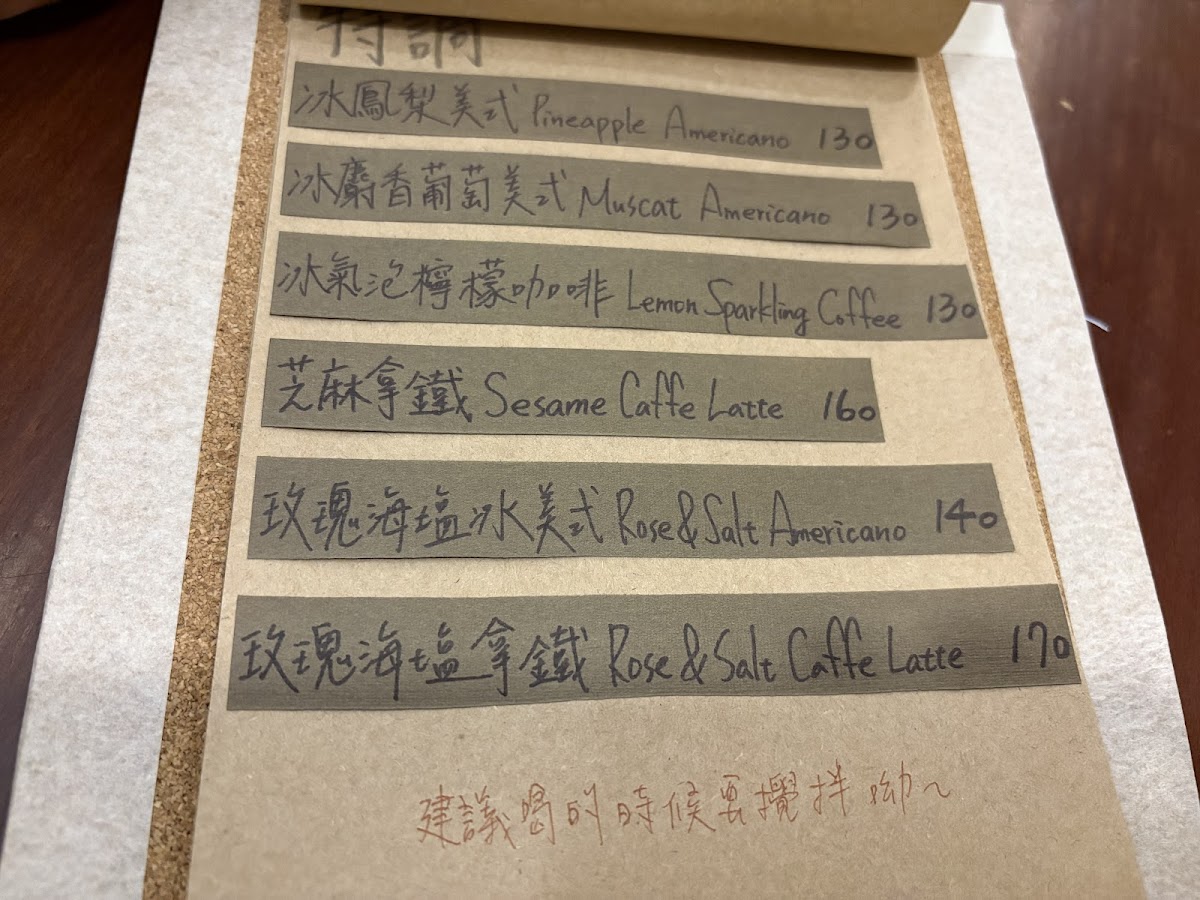 特調
冰鳳梨美式 Pineapple Americano 130
冰麝香葡萄美式 Muscat Americano 130
冰氣泡檸檬咖啡 Lemon Sparkling Coffee 130
芝麻拿鐵 Sesame Caffe Latte 160
玫瑰海塩冰美式 Rose&Salt Americano 140
玫瑰海塩拿鐵 Rose&Salt Caffe Latte 170
建議喝的時候要攪拌呦~